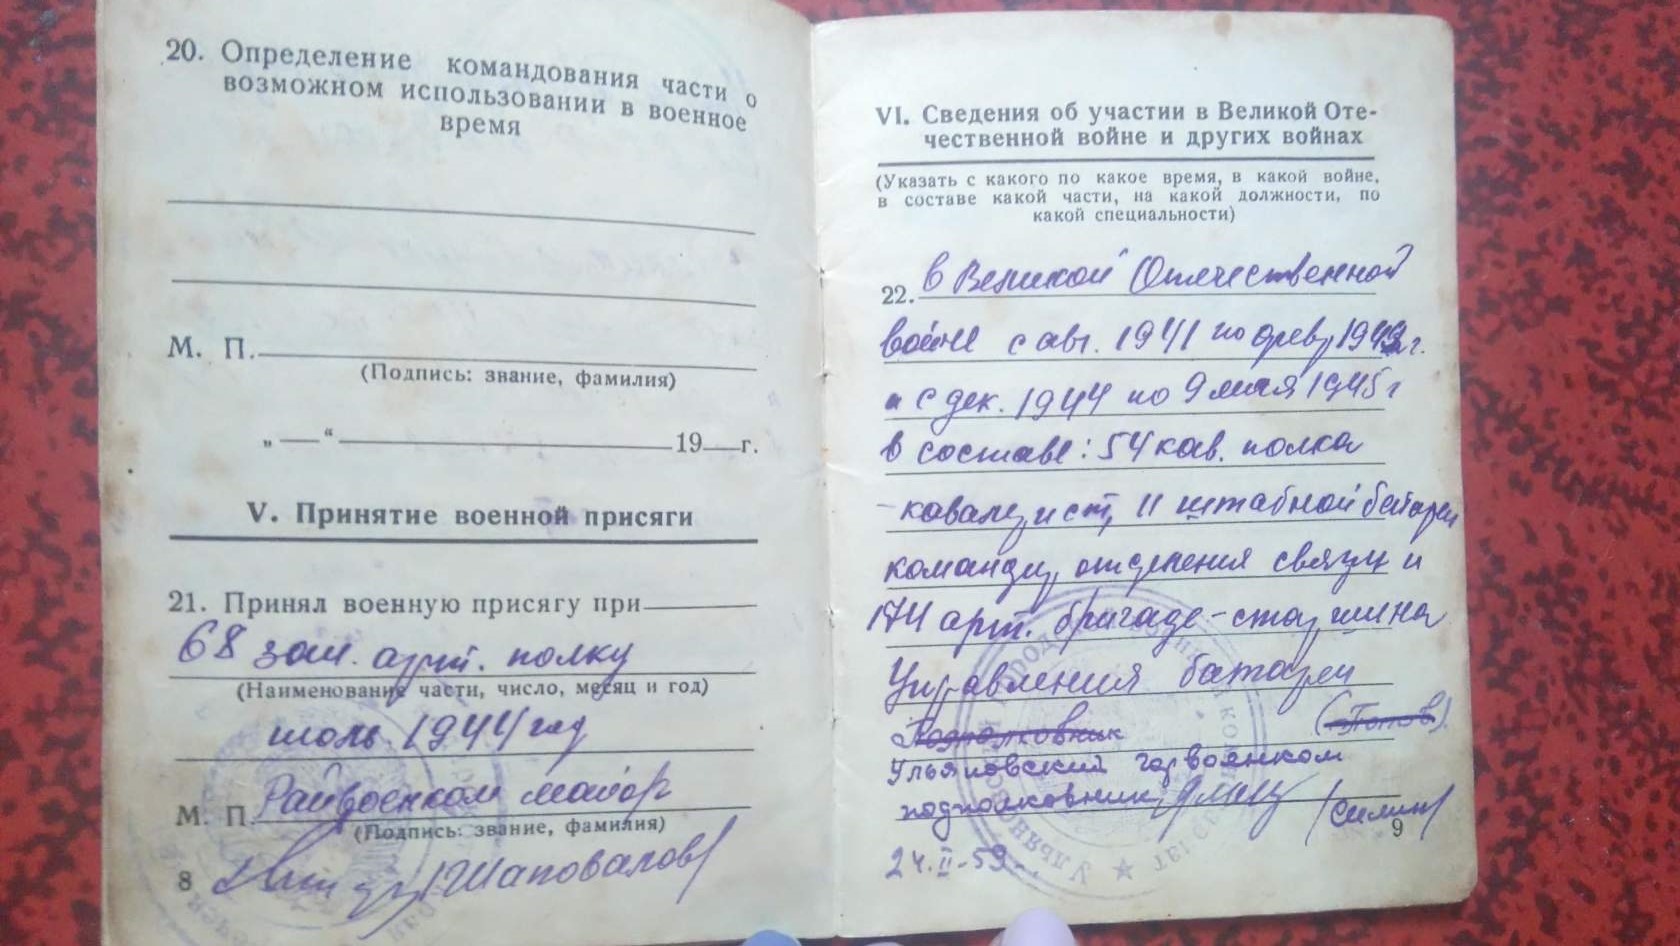 20. Определение командования части о
возможном использовании в военное
время
М. П.
(Подпись: звание, фамилия)
„ — “ 19 г.
V. Принятие военной присяги
21. Принял военную присягу при
68 зап. арт. полку
(Наименование части, число, месяц и год)
июль 1944 год
М. П. Райвоенком майор
(Подпись: звание, фамилия)
/Шаповалов/
8
VI. Сведения об участии в Великой Оте-
чественной войне и других войнах
(Указать с какого по какое время, в какой войне,
в составе какой части, на какой должности, по
какой специальности)
22. в Великой Отечественной
войне с авг. 1941 по февр 1942 г.
и с дек. 1944 по 9 мая 1945 г
в составе: 54 кав. полка
- кавалерист, II штабной батареи
командир отделения связи и
174 арт. бригаде - старшина
Управления батареи
Подполковник (Попов).
Ульяновский горвоенком
подполковник /Силин/
9
24.II-59.